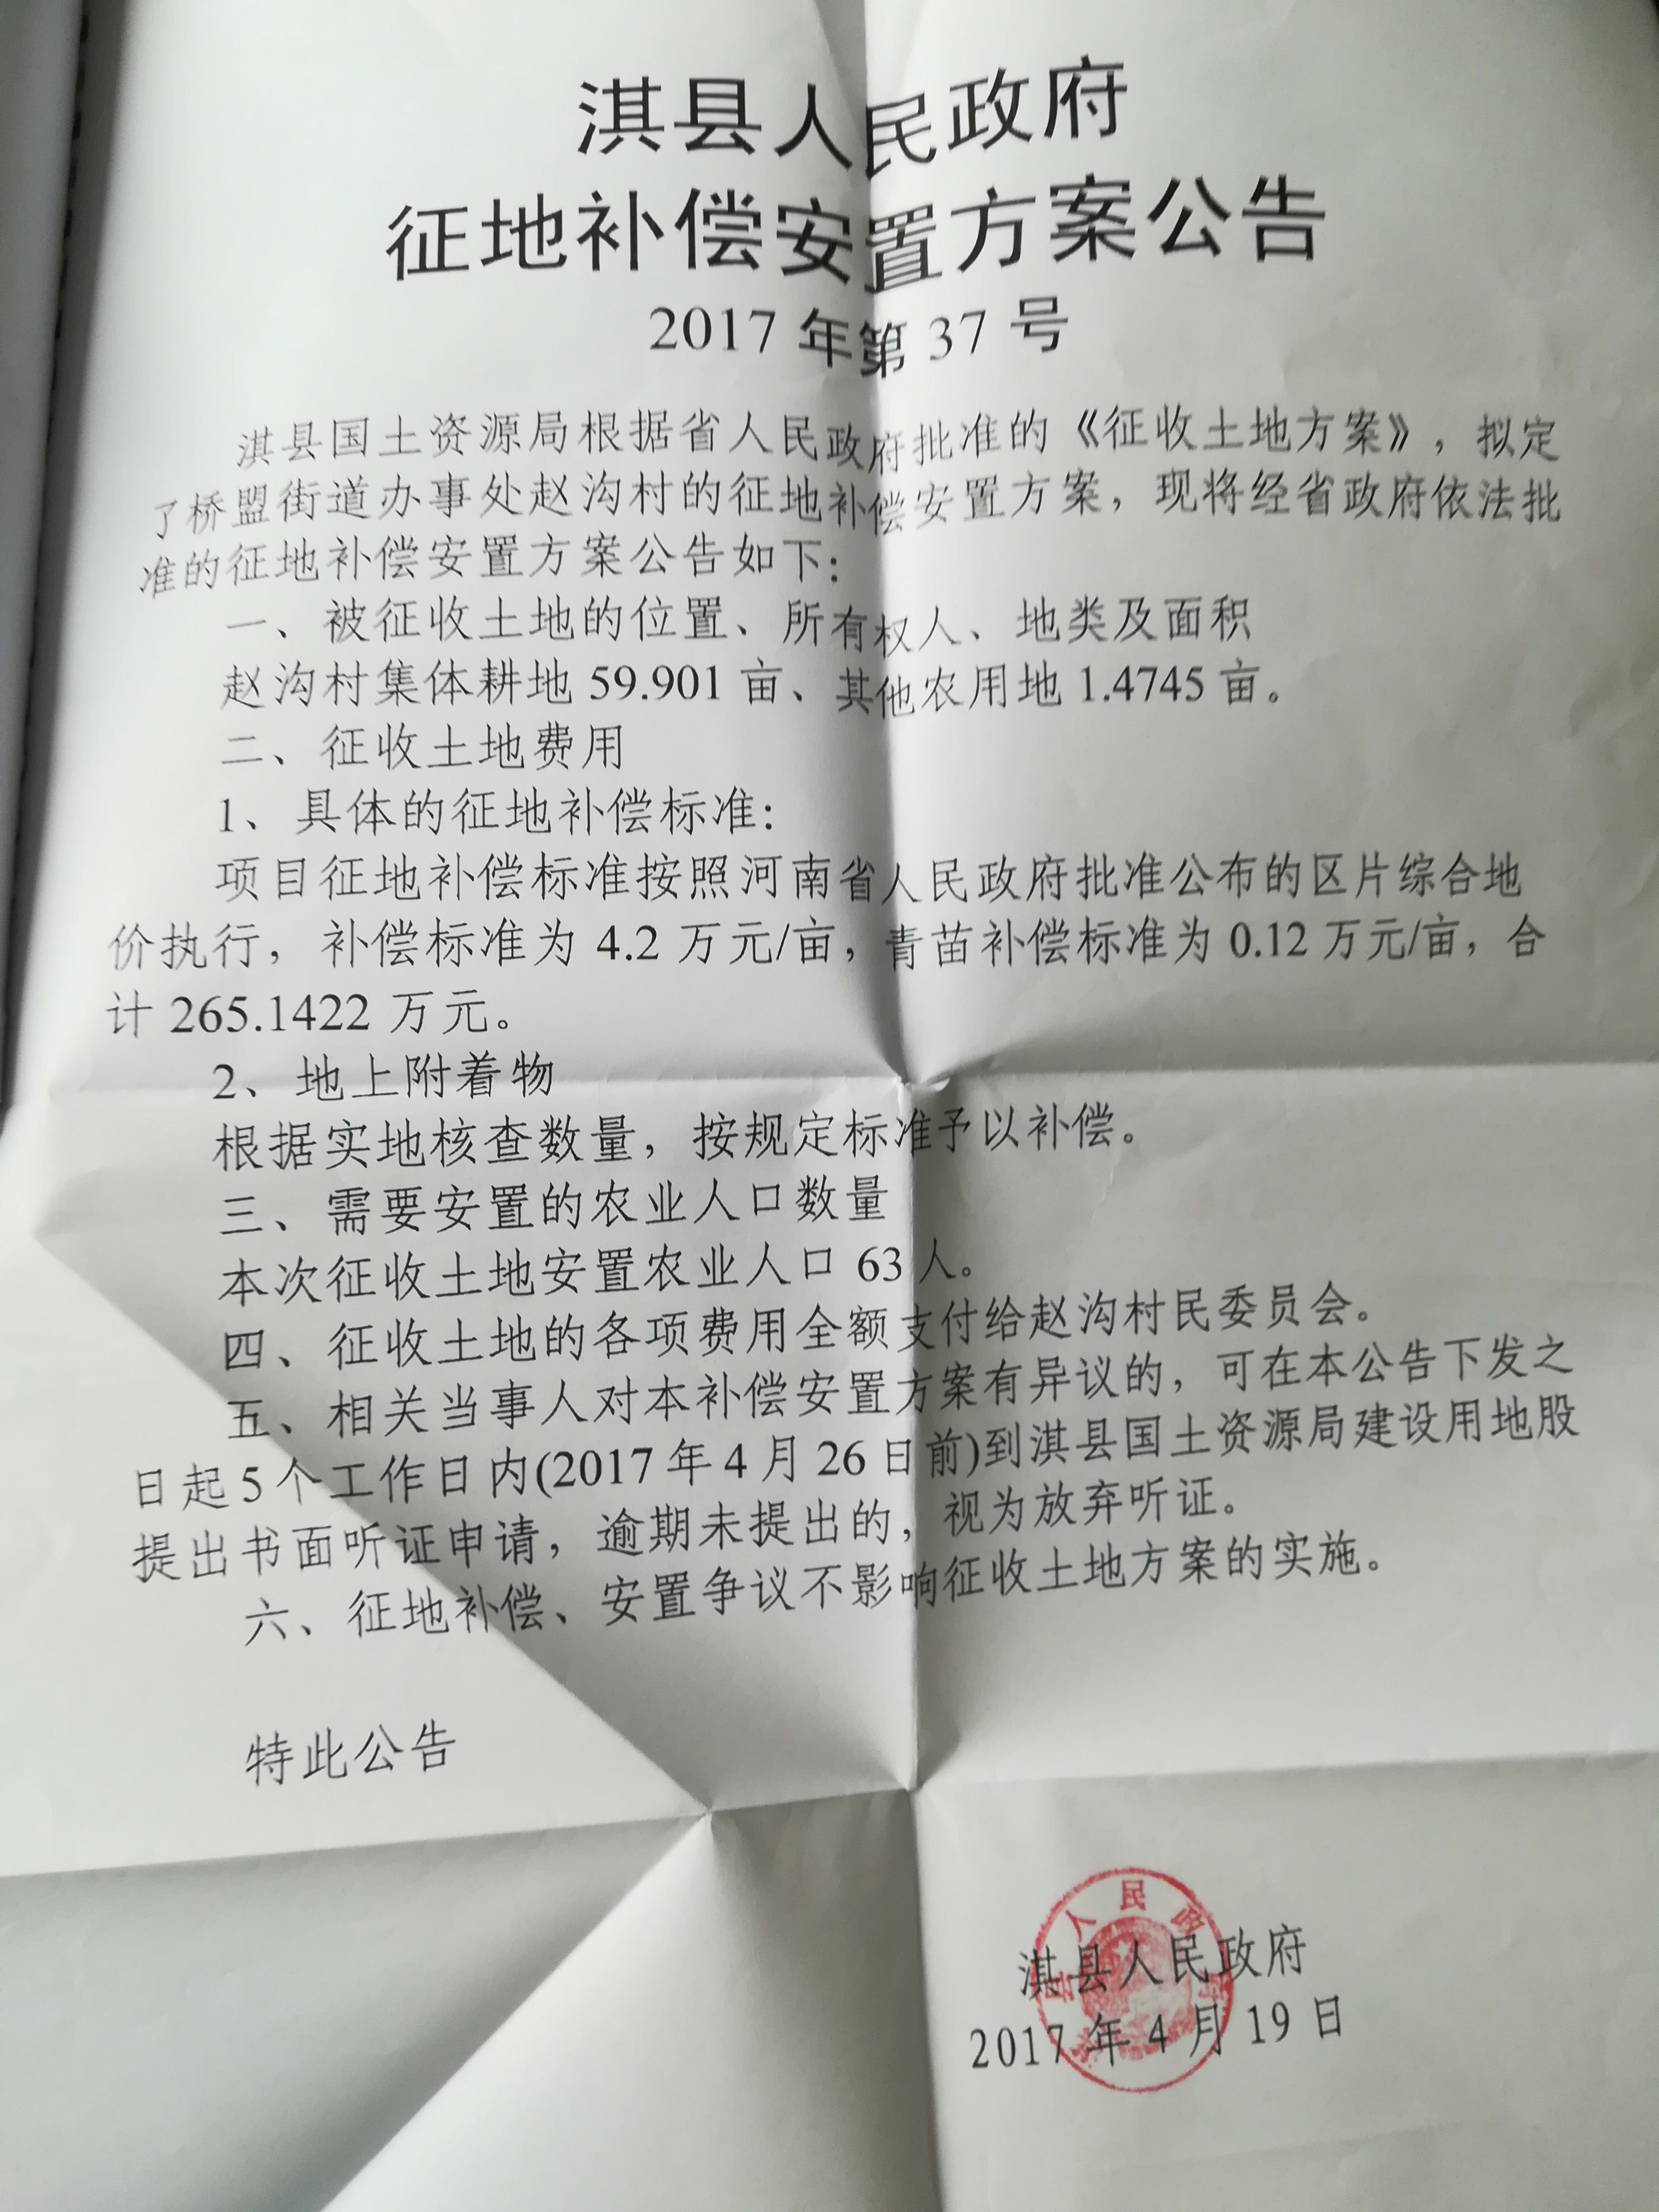 淇县人民政府
征地补偿安置方案公告
2017 年第 37 号
淇县国土资源局根据省人民政府批准的《征收土地方案》，拟定
了桥盟街道办事处赵沟村的征地补偿安置方案，现将经省政府依法批
准的征地补偿安置方案公告如下：
一、被征收土地的位置、所有权人、地类及面积
赵沟村集体耕地 59.901 亩、其他农用地 1.4745 亩。
二、征收土地费用
1、具体的征地补偿标准：
项目征地补偿标准按照河南省人民政府批准公布的区片综合地
价执行，补偿标准为 4.2 万元/亩，青苗补偿标准为 0.12 万元/亩，合
计 265.1422 万元。
2、地上附着物
根据实地核查数量，按规定标准予以补偿。
三、需要安置的农业人口数量
本次征收土地安置农业人口 63 人。
四、征收土地的各项费用全额支付给赵沟村民委员会。
五、相关当事人对本补偿安置方案有异议的，可在本公告下发之
日起 5 个工作日内(2017 年 4 月 26 日前)到淇县国土资源局建设用地股
提出书面听证申请，逾期未提出的，视为放弃听证。
六、征地补偿、安置争议不影响征收土地方案的实施。
特此公告
淇县人民政府
2017 年 4 月 19 日